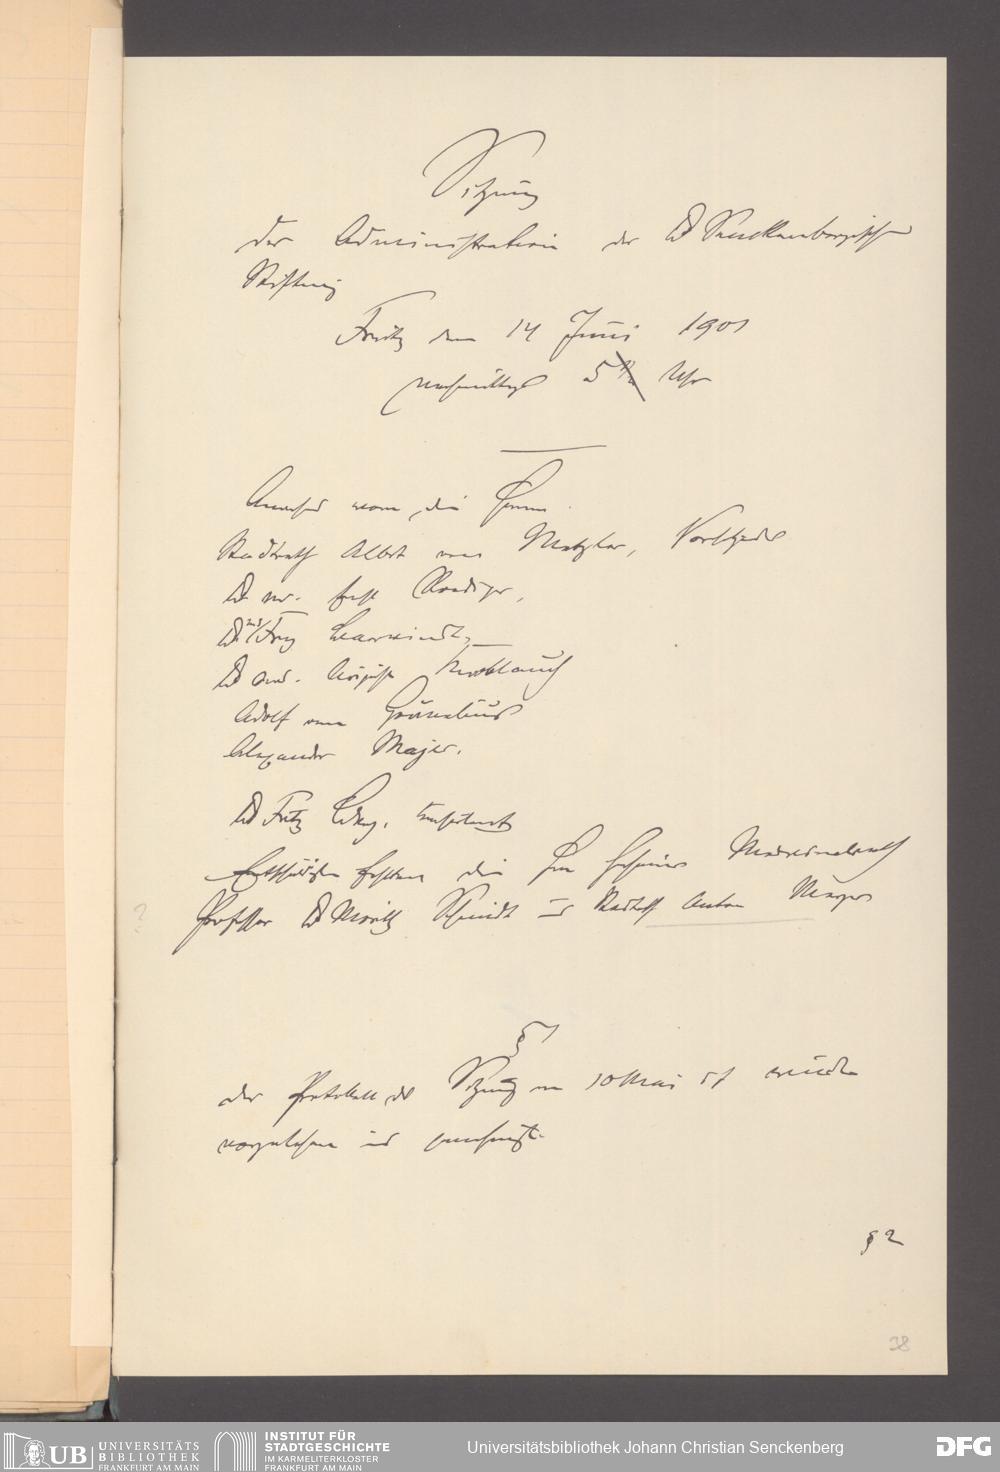 Sitzung
der Administration der Dr Senckenbergischen
Stiftung
Freitag den 14 Juni 1901
nachmittags 5 1/2 Uhr
Anwesend waren die Herren
Stadtrath Albert von Metzler, Vorsitzender
Dr med. Ernst Roediger,
Dr
Dr med. August Knoblauch
Adolf von Grunelius
Alexander Majer.
Dr Fritz Consulent
Entschuldigt fehlten die Herren Geheimer Medicinalrath
Professor Dr Moritz Schmidt und Stadtrath Anton Meyer
?
§ 1
der Protokoll der Sitzung vom 10 Mai wurde
vorgelesen und genehmigt.
§ 2
38
UB UNIVERSITÄTS
BIBLIOTHEK
FRANKFURT AM MAIN
INSTITUT FÜR
STADTGESCHICHTE
IM KARMELITERKLOSTER
FRANKFURT AM MAIN
Universitätsbibliothek Johann Christian Senckenberg
DFG